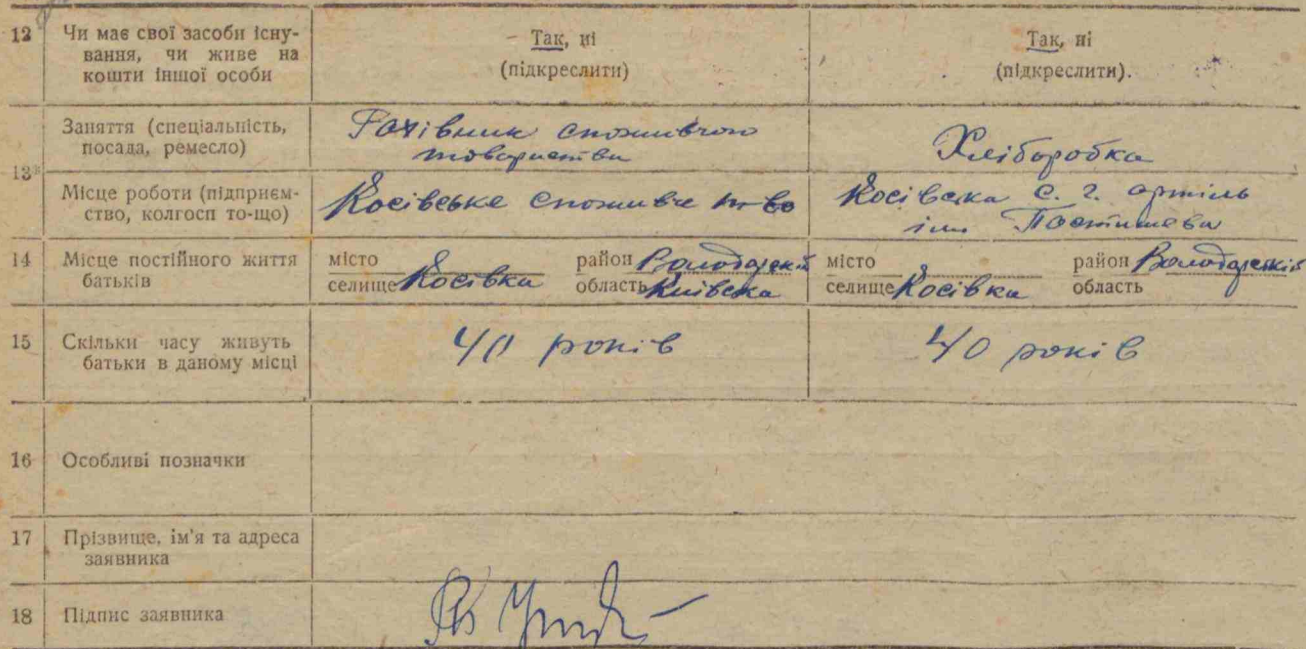 12 Чи має свої засоби існу-
вання, чи живе на
кошти іншої особи
Так, ні
(підкреслити)
Так, ні
(підкреслити).
13
Заняття (спеціальність,
посада, ремесло)
Рахівник споживчого
товариства
Хліборобка
Місце роботи (підприєм-
ство, колгосп то-що)
Косівське споживче т-во
Косівска С. г. артіль
ім Постишева
14 Місце постійного життя
батьків
місто
селище Косівка
район Володарський
область Київска
місто
селище Косівка
район Володарский
область
15 Скільки часу живуть
батьки в даному місці
40 років
40 років
16 Особливі позначки
17 Прізвище, ім'я та адреса
заявника
18 Підпис заявника